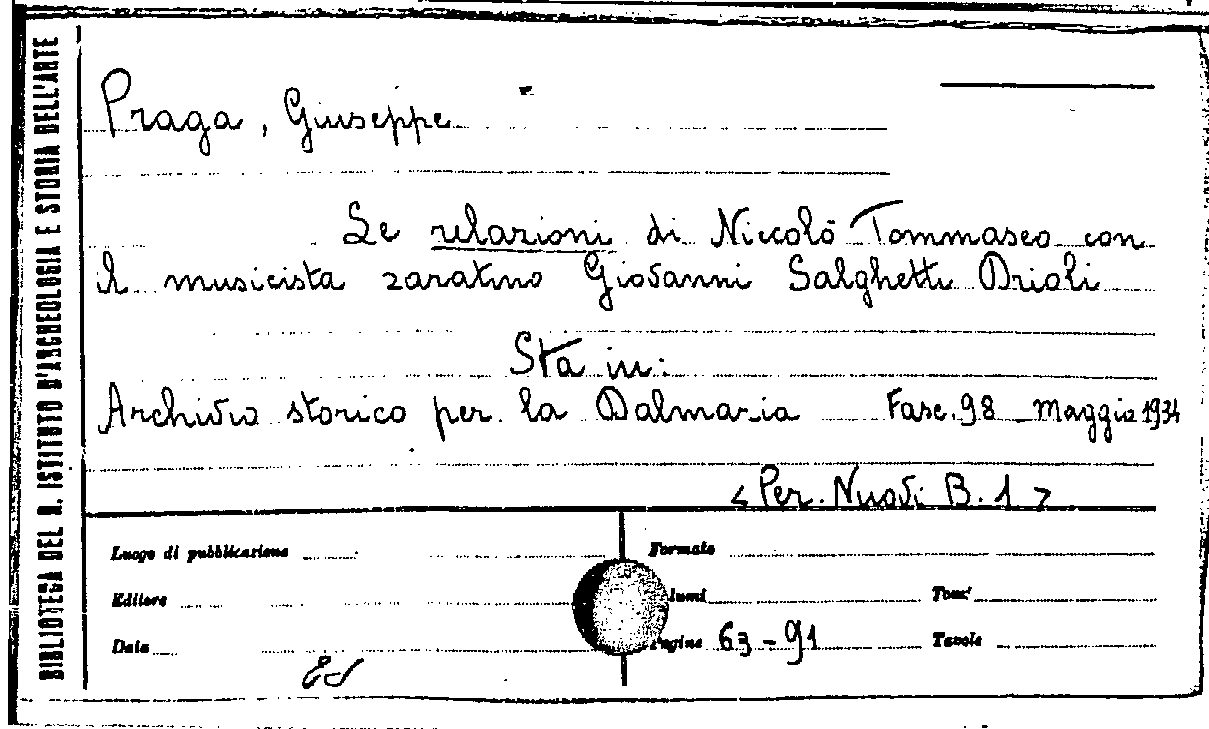 BIBLIOTECA DEL R. ISTITUTO D'ARCHEOLOGIA E STORIA DELL'ARTE
Praga, Giuseppe
Le relazioni di Niccolò Tommaseo con
il musicista zaratino Giovanni Salghetti Drioli
Sta in:
Archivio storico per la Dalmazia Fasc. 98 Maggio 1934
<Per. Nuovi B. 1>
Luogo di pubblicazione Formato
Editore lumi Tomi
Data Pagine 63-91 Tavole